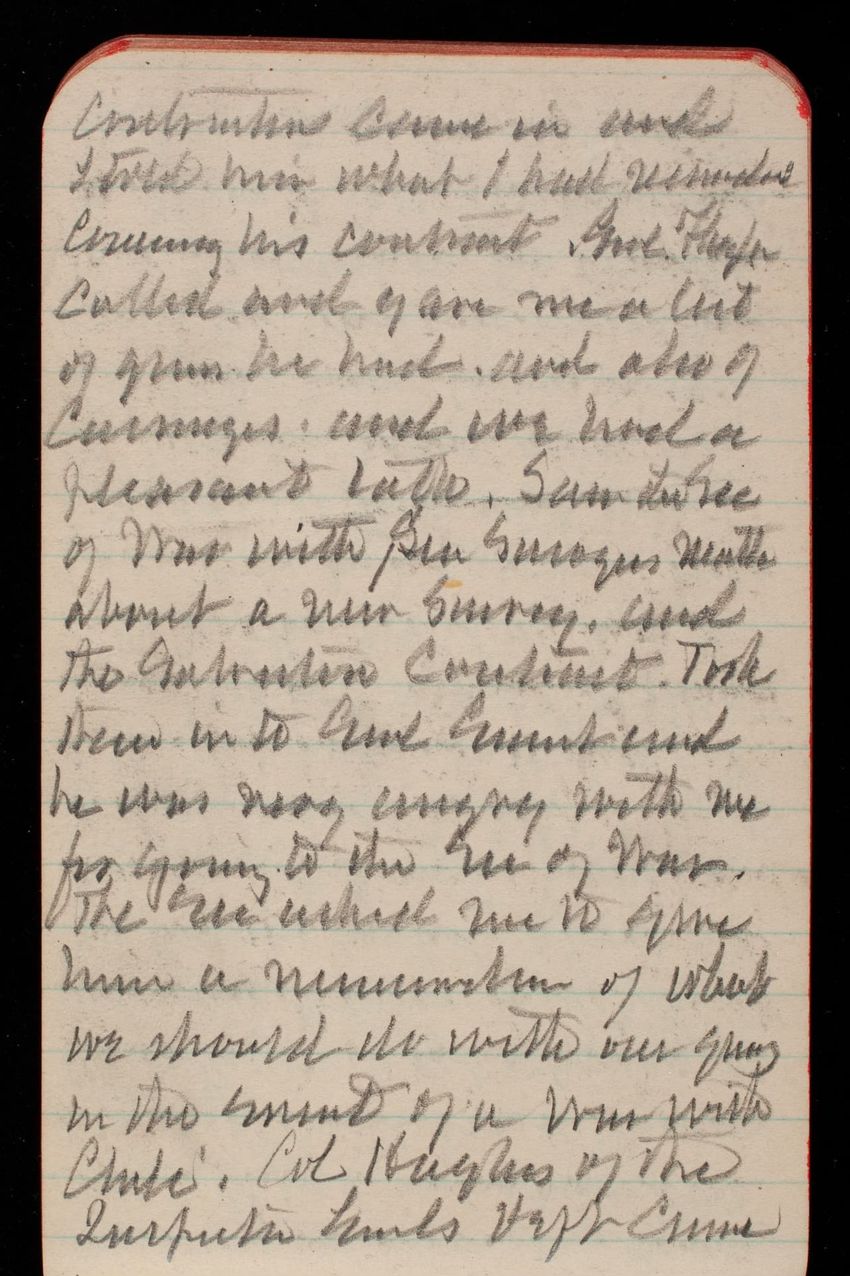 Contractor came in and
I told him what I had
his contract. Genl.
called and gave me a list
of guns he had. and also of
Carriages. and we had a
pleasant talk. Saw the Sec
of War with
about a new Survey. and
the Galveston Contract. Took
them in to Genl Grant and
he was very angry with me
for going to the Sec of War.
The Sec asked me to give
him a memorandum of what
we should do with our guns
in the event of a War with
Chili. Col Hughes of the
Inspector Genls Dept Came